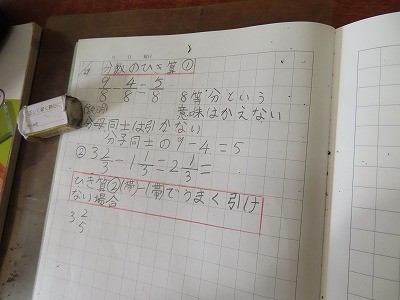 分数のひき算①
9/8-4/8=5/8 8等分という
(説明) 意味はかえない
分母同士は引かない
分子同士の9-4=5
② 3 2/3-1 1/3=2 1/3=
ひき算②(帯)-(帯)でうまく引け
ない場合
3 2/5